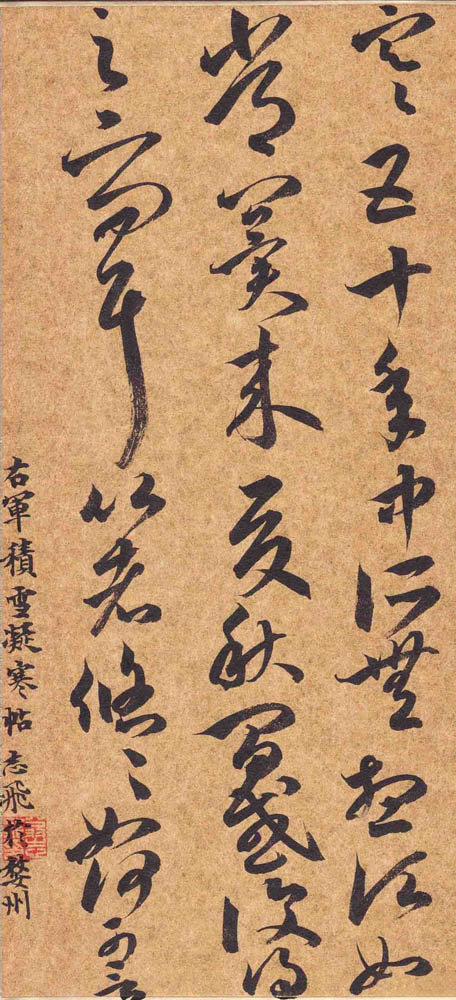 寒五十年中所無想頃如
常冀來夏秋間或復得
足下問耳比者悠〻如何可言
右軍積雪凝寒帖志飛於婺州